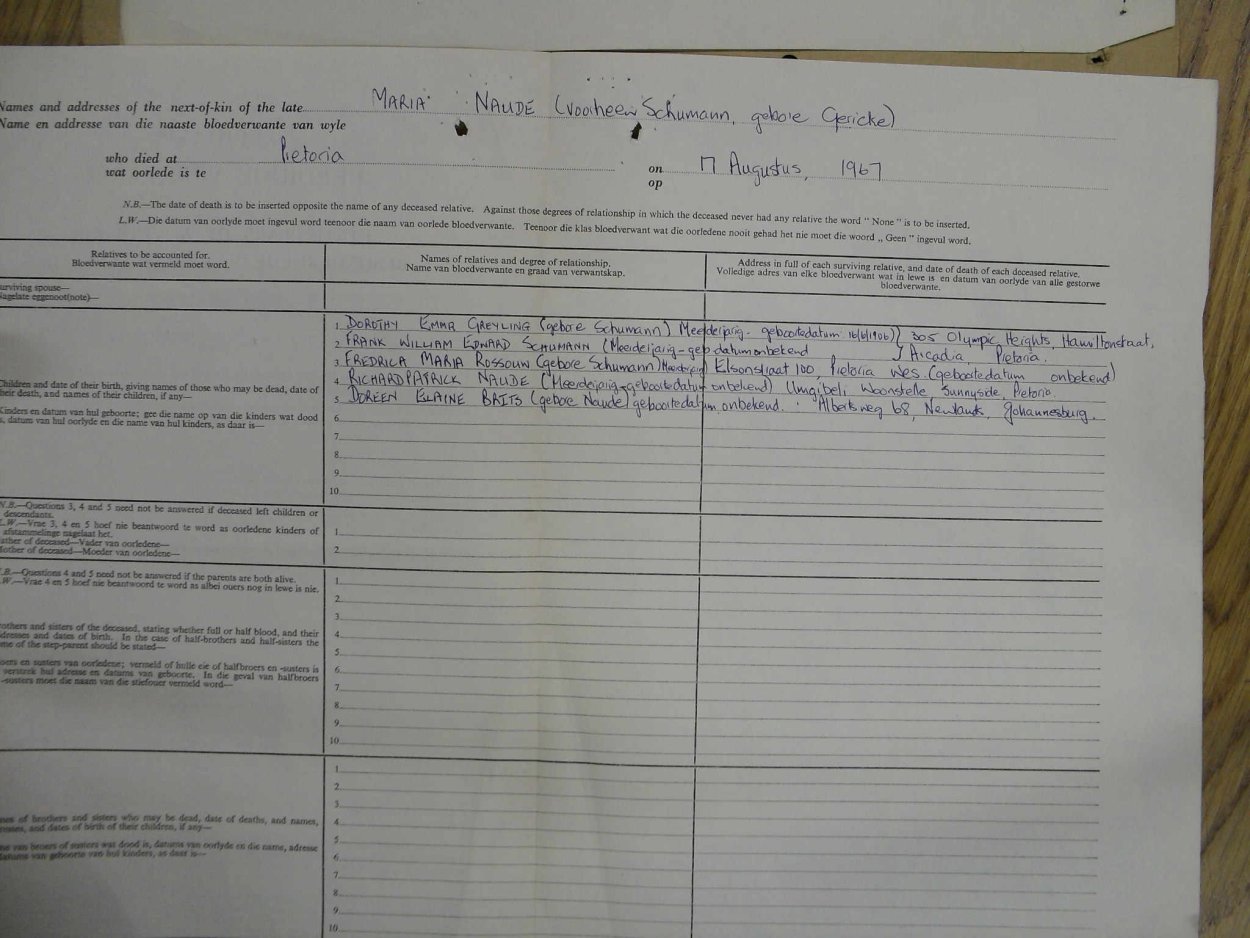 Names and addresses of the next-of-kin of the late MARIA NAUDE (voorheen Schumann, gebore Gericke)
Name en addresse van die naaste bloedverwante van wyle
who died at Pretoria on 17 Augustus, 1967
wat oorlede is te op
N.B.—The date of death is to be inserted opposite the name of any deceased relative. Against those degrees of relationship in which the deceased never had any relative the word " None " is to be inserted.
L.W.—Die datum van oorlyde moet ingevul word teenoor die naam van oorlede bloedverwante. Teenoor die klas bloedverwant wat die oorledene nooit gehad het nie moet die woord „ Geen " ingevul word.
Relatives to be accounted for.
Bloedverwante wat vermeld moet word.
Names of relatives and degree of relationship.
Name van bloedverwante en graad van verwantskap.
Address in full of each surviving relative, and date of death of each deceased relative.
Volledige adres van elke bloedverwant wat in lewe is en datum van oorlyde van alle gestorwe
bloedverwante.
urviving spouse—
Nagelate eggenoot(note)—
Children and date of their birth, giving names of those who may be dead, date of
their death, and names of their children, if any—
Kinders en datum van hul geboorte; gee die name op van die kinders wat dood
s, datum van hul oorlyde en die name van hul kinders, as daar is—
1. DOROTHY EMMA GREYLING (gebore Schumann) Meerderjarig - geboortedatum 16/6/1906) } 305 Olympic Heights, Hamiltonstraat,
2. FRANK WILLIAM EDWARD SCHUMANN (Meerderjarig - geb datum onbekend } Arcadia, Pretoria.
3. FREDRICA MARIA ROSSOUW (gebore Schumann) Meerderjarig Elsonstraat 100, Pretoria Wes. (geboortedatum onbekend)
4. RICHARD PATRICK NAUDE (Meerderjarig - geboortedatum onbekend) Umgibeli Woonstelle Sunnyside, Pretoria
5. DOREEN ELAINE BRITS (gebore Naude) geboortedatum onbekend. : Albertsweg 68, Newlands, Johannesburg.
6.
7.
8.
9.
10.
N.B.—Questions 3, 4 and 5 need not be answered if deceased left children or
descendants.
L.W.—Vrae 3, 4 en 5 hoef nie beantwoord te word as oorledene kinders of
afstammelinge nagelaat het.
Father of deceased—Vader van oorledene—
Mother of deceased—Moeder van oorledene—
1.
2.
N.B.—Questions 4 and 5 need not be answered if the parents are both alive.
W.—Vrae 4 en 5 hoef nie beantwoord te word as albei ouers nog in lewe is nie.
others and sisters of the deceased, stating whether full or half blood, and their
dresses and dates of birth. In the case of half-brothers and half-sisters the
me of the step-parent should be stated—
oers en susters van oorledene; vermeld of hulle eie of halfbroers en -susters is
verstrek hul adresse en datums van geboorte. In die geval van halfbroers
-susters moet die naam van die stiefouer vermeld word—
1.
2.
3.
4.
5.
6.
7.
8.
9.
10.
mes of brothers and sisters who may be dead, date of deaths, and names,
resses, and dates of birth of their children, if any—
me van broers of susters wat dood is, datums van oorlyde en die name, adresse
datums van geboorte van hul kinders, as daar is—
1.
2.
3.
4.
5.
6.
7.
8.
9.
10.